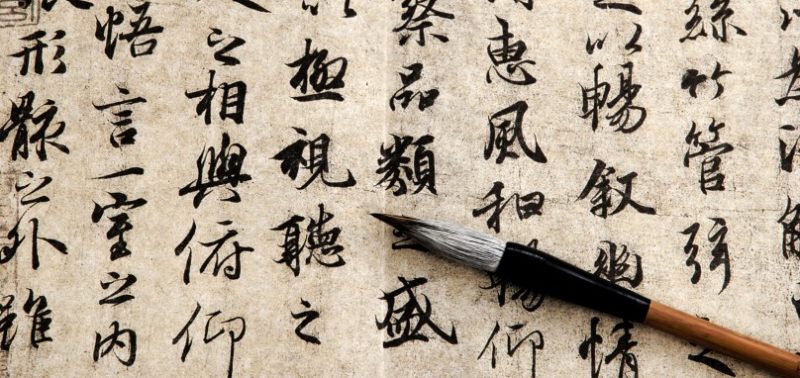 絲竹管弦之
以暢叙幽情
惠風和暢仰
察品類之盛
極視聽之
之相與俯仰
悟言一室之内
形骸之外雖